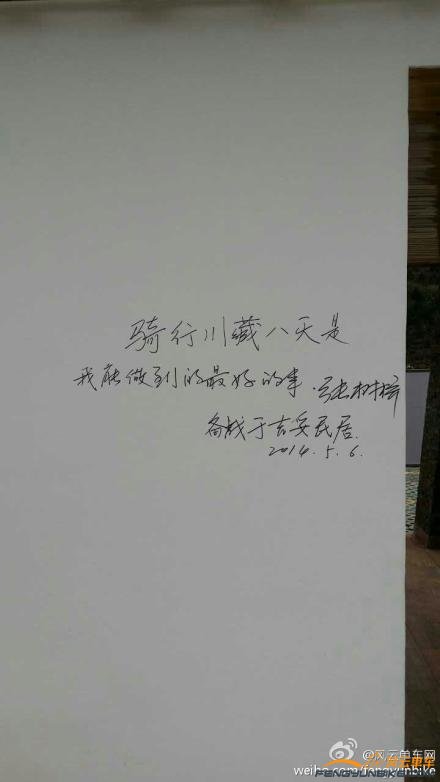 骑行川藏八天是
我能做到的最好的事.
备战于吉安民居.
2014.5.6.
@风云单车网
风云单车
FENGYUNBIKE
weibo.com/fengyunbike